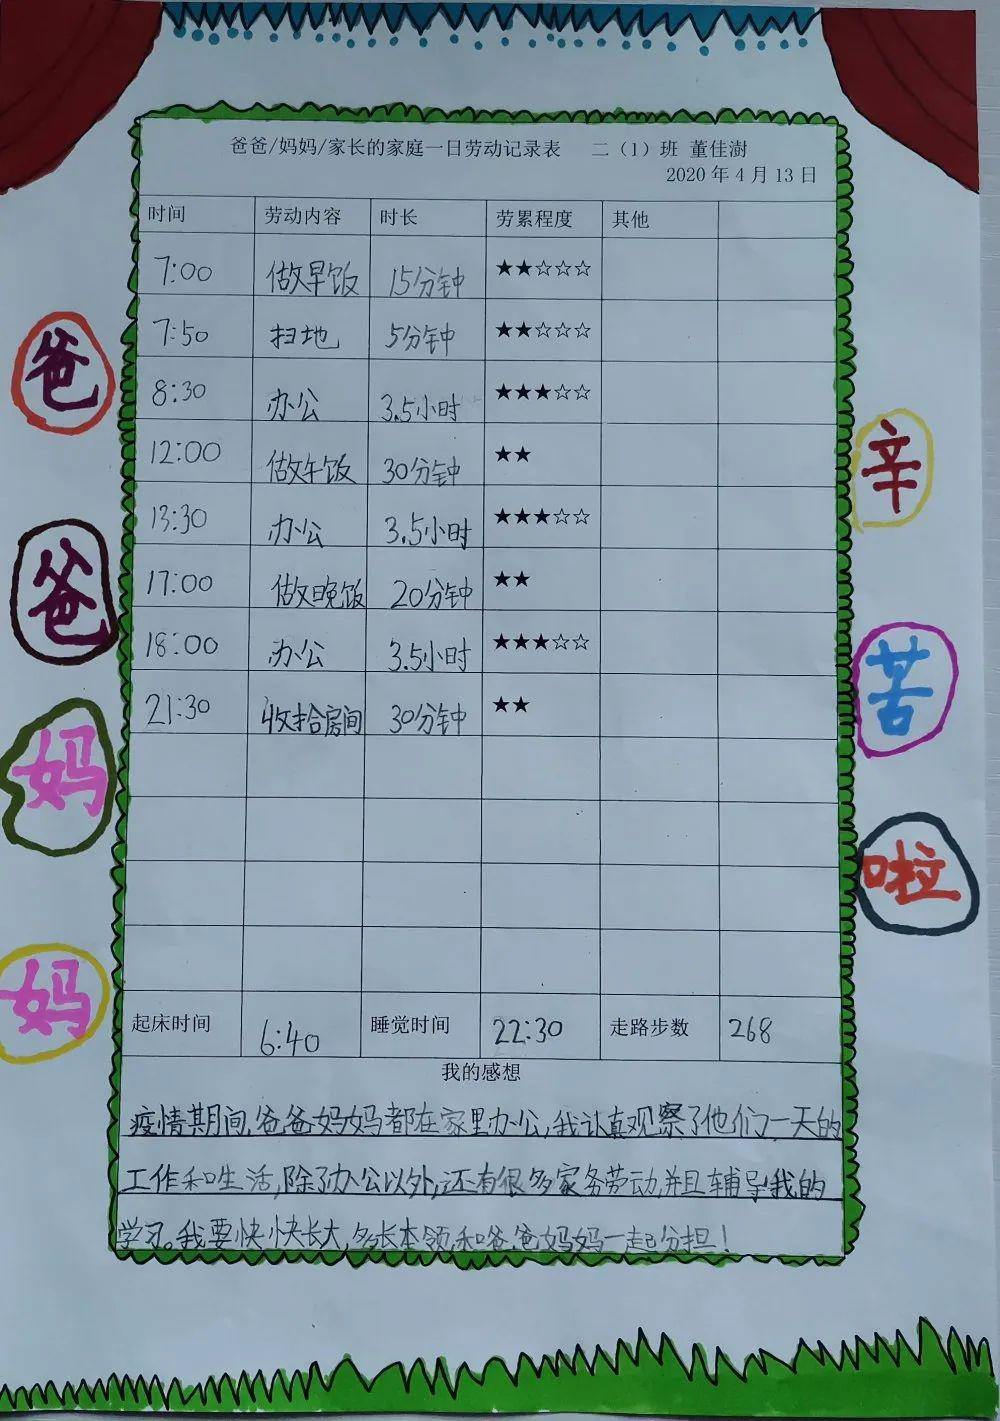 爸爸/妈妈/家长的家庭一日劳动记录表 二（1）班 董佳澍
2020年4月13日
时间 劳动内容 时长 劳累程度 其他
7:00 做早饭 15分钟 ★★☆☆☆
7:50 扫地 5分钟 ★★☆☆☆
8:30 办公 3.5小时 ★★★☆☆
12:00 做午饭 30分钟 ★★
13:30 办公 3.5小时 ★★★☆☆
17:00 做晚饭 20分钟 ★★
18:00 办公 3.5小时 ★★★☆☆
21:30 收拾房间 30分钟 ★★
起床时间 6:40 睡觉时间 22:30 走路步数 268
我的感想
疫情期间,爸爸妈妈都在家里办公,我认真观察了他们一天的
工作和生活,除了办公以外,还有很多家务劳动,并且辅导我的
学习。我要快快长大,多长本领,和爸爸妈妈一起分担!
爸
爸
妈
妈
辛
苦
啦